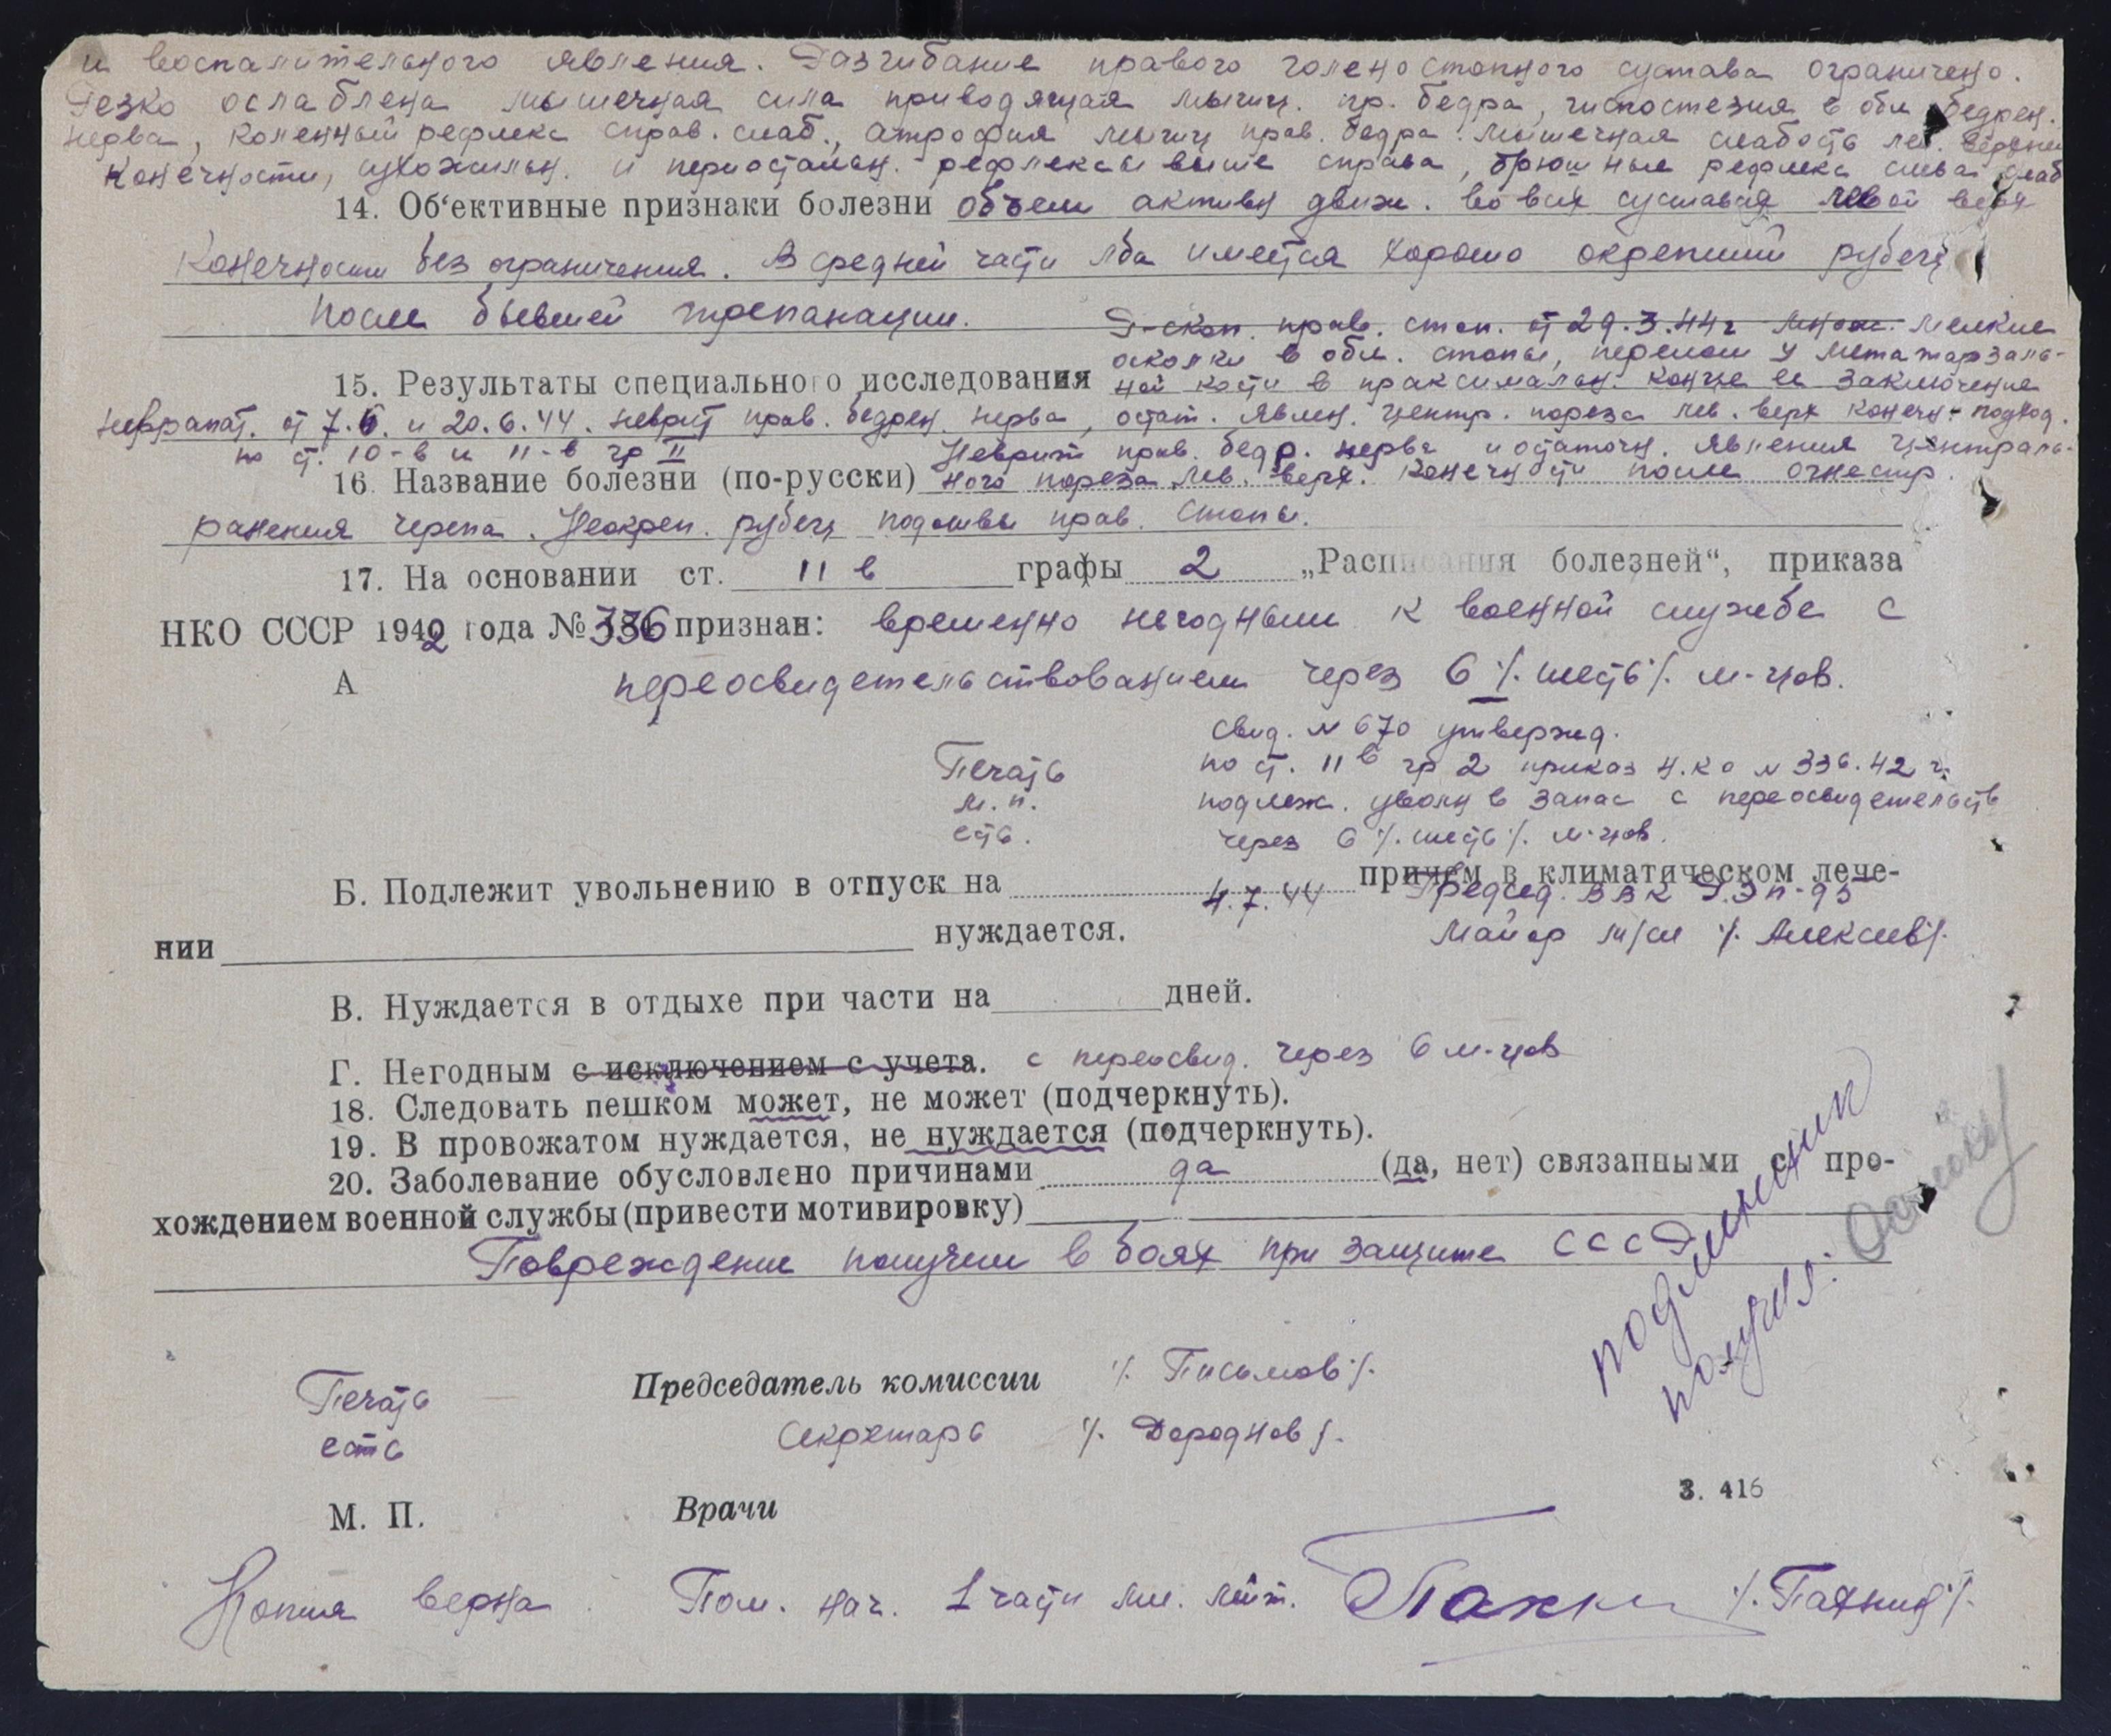 и воспалительного явления. Разгибание правого голеностопного сустава ограничено.
Резко ослаблена мышечная сила приводящая мышц. пр. бедра, гипостезия в обл бедрен.
нерва, коленный рефлекс справ. слаб., атрофия мышц прав. бедра. мышечная слабость лев. верхней
конечности, сухожильн. и периостальн. рефлексы выше справа, брюшные рефлекс слева слаб
14. Об‘ективные признаки болезни объем активн движ. во всех суставах левой верх
конечности без ограничения. В средней части лба имеется хорошо окрепший рубец
после бывшей трепанации. Р-скоп. прав. стоп. от 29.3.44г множ. мелкие
осколки в обл. стопы, перелом у метатарзаль-
15. Результаты специального исследования ной кости в праксимальн. конце ее заключение
невропат. от 7.6. и 20.6.44. неврит прав. бедрен. нерва, остат. явлен. центр. пореза лев. верх конечн. подход.
по ст. 10-в и 11-в гр II Неврит прав. бедр. нерва и остаточн. явления централь-
16. Название болезни (по-русски) ного пореза лев. верх. конечности после огнестр.
ранения черепа. Неокреп. рубец подошвы прав. стопы.
17. На основании ст. 11 в графы 2 „Расписания болезней“, приказа
НКО СССР 1942 года № 336 признан: временно негодным к военной службе с
А переосвидетельствованием через 6 /. шесть /. м-цов.
свид. N 670 утвержд.
Печать по ст. 11 в гр 2 приказ Н.КО N 336.42 г.
М. п. подлеж. увольн в запас с переосвидетельств
есть. через 6 /. шесть /. м-цов.
Б. Подлежит увольнению в отпуск на причем в климатическом лече-
4.7.44 Председ. ВВК Р.Эп-95
нии нуждается. Майор м/сл /. Алексеев /.
В. Нуждается в отдыхе при части на дней.
Г. Негодным с исключением с учета. с переосвид. через 6 м-цов
18. Следовать пешком может, не может (подчеркнуть).
19. В провожатом нуждается, не нуждается (подчеркнуть).
20. Заболевание обусловлено причинами да (да, нет) связанными с про-
хождением военной службы (привести мотивировку)
Повреждение получил в боях при защите СССР
подлинник
получил:
Печать Председатель комиссии /. Письмов /.
есть Секретарь /. Дороднов /.
З. 416
М. П. Врачи
Копия верна Пом. нач. 1 части мл. лейт. /. Пахниц /.